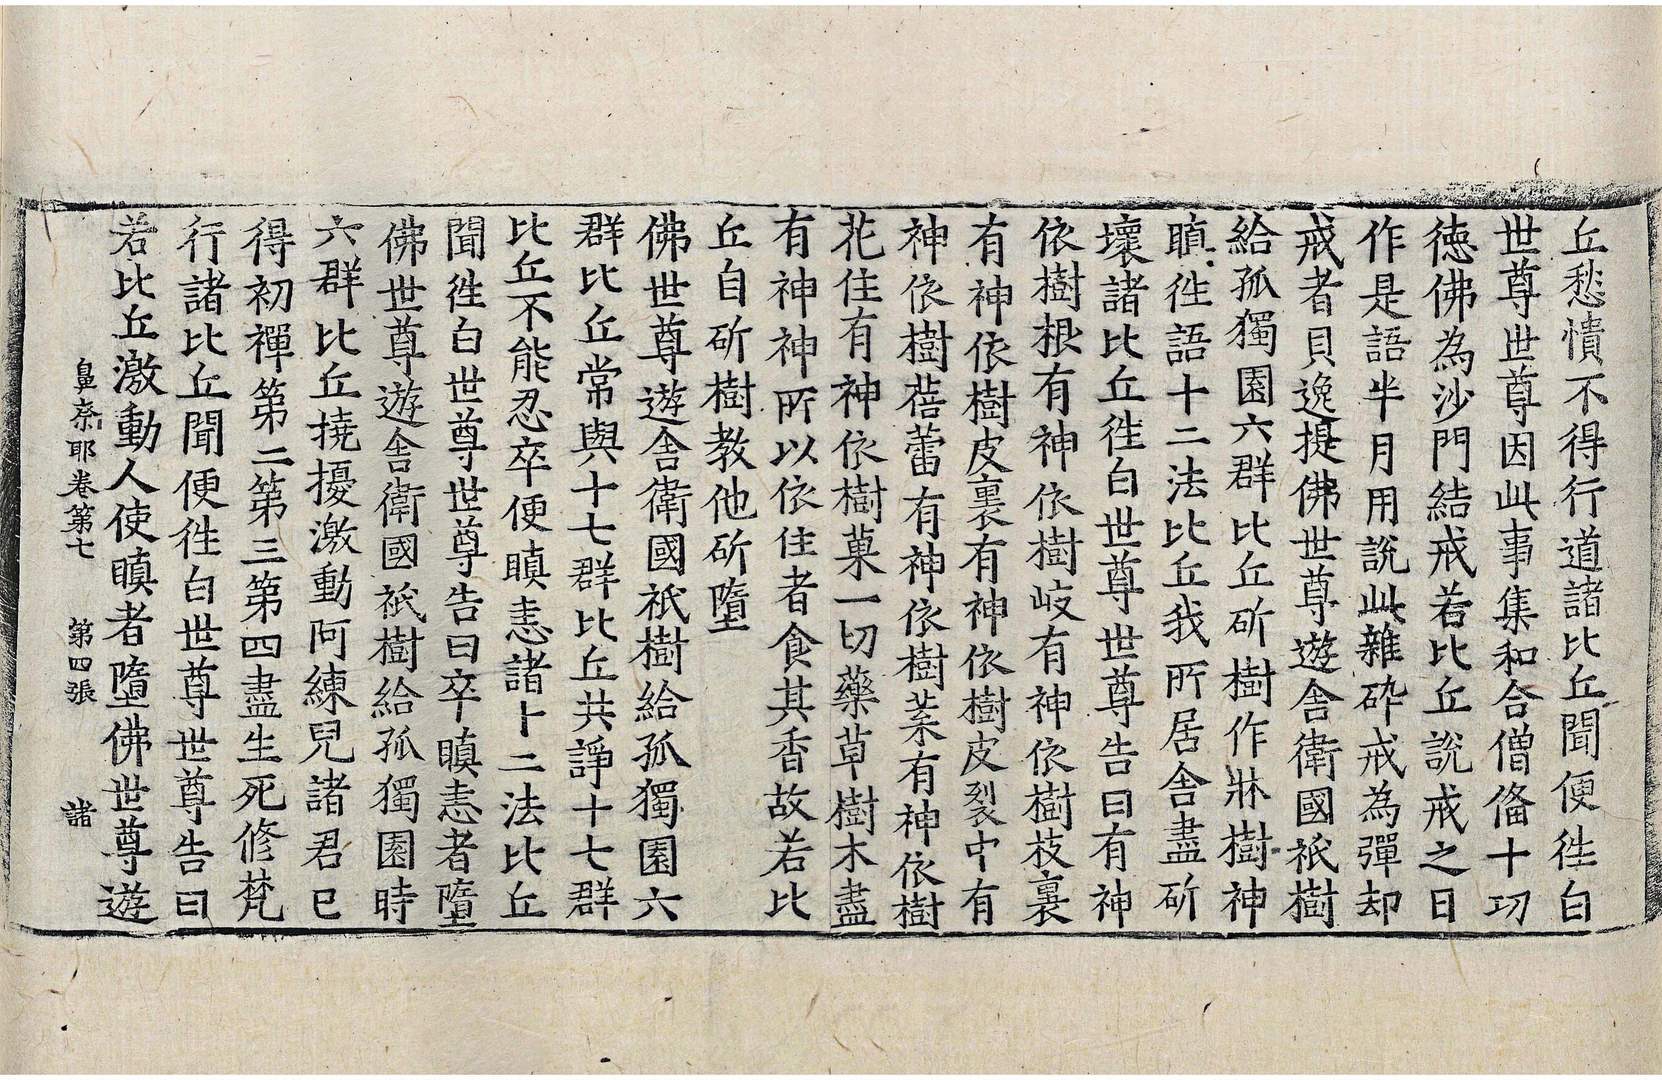 丘愁憒不得行道諸比丘聞便徃白
世尊世尊因此事集和合僧俻十㓛
徳佛為沙門結戒若比丘說戒之日
作是語半月用說此雜碎戒為彈却
戒者貝逸提佛世尊遊舍衛國祇樹
給孤獨園六群比丘斫樹作牀樹神
瞋徃語十二法比丘我所居舍盡斫
壞諸比丘徃白世尊世尊告曰有神
依樹根有神依樹岐有神依樹枝裏
有神依樹皮裏有神依樹皮裂中有
神依樹蓓蕾有神依樹葉有神依樹
花住有神依樹菓一切藥草樹木盡
有神神所以依住者食其香故若比
丘自斫樹教他斫墮
佛世尊遊舍衛國祇樹給孤獨園六
群比丘常與十七群比丘共諍十七群
比丘不能忍卒便瞋恚諸十二法比丘
聞徃白世尊世尊告曰卒瞋恚者墮
佛世尊遊舍衛國祇樹給孤獨園時
六群比丘撓擾激動阿練兒諸君已
得初禪第二第三第四盡生死修梵
行諸比丘聞便徃白世尊世尊告曰
若比丘激動人使瞋者墮佛世尊遊
鼻奈耶卷第七 第四張 諸